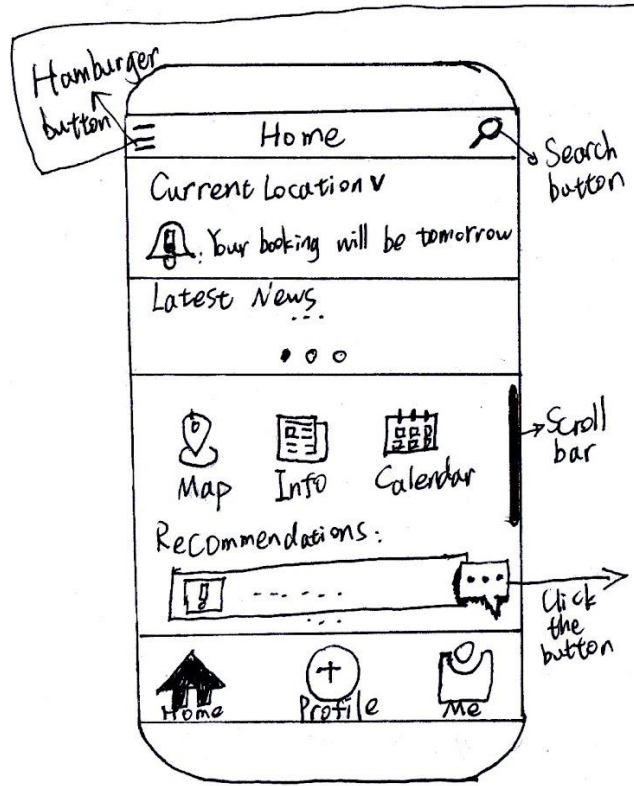 Hamburger
button
Home
Search
button
Current Location v
: Your booking will be tomorrow
Latest News
...
Map Info Calendar
Scroll
bar
Recommendations:
Click
the
button
Home Profile Me